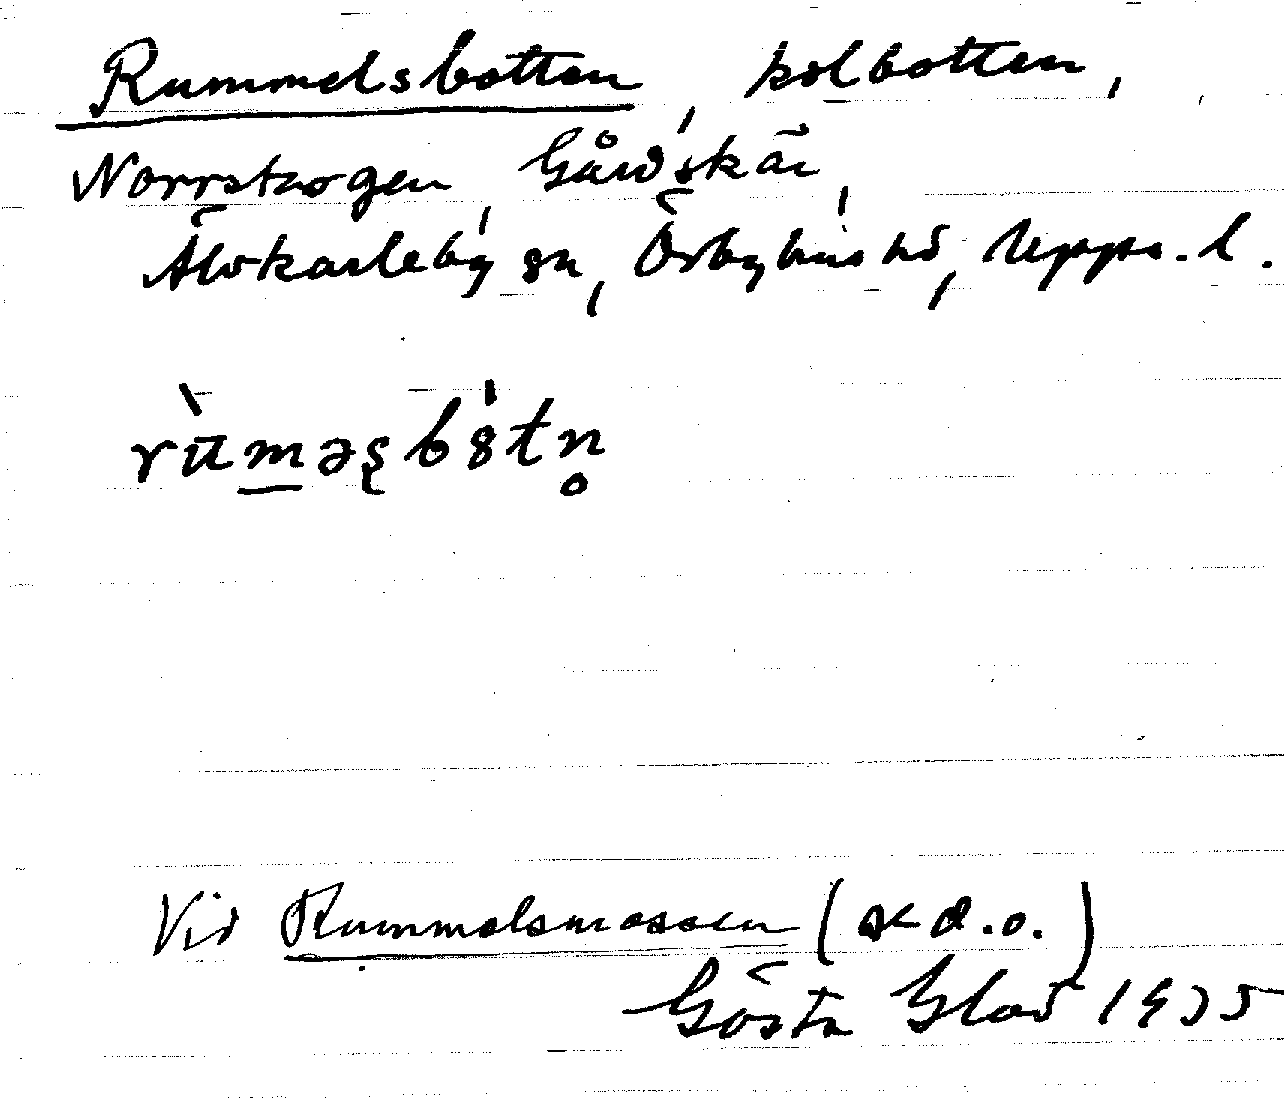 Rummelsbotten, kolbotten,
Norrskogen, Gårdskär,
Älvkarleby sn, Örbyhus hd, Upps. l.
Vid Rummelsmossen (se d. o.)
Gösta Glad 1935